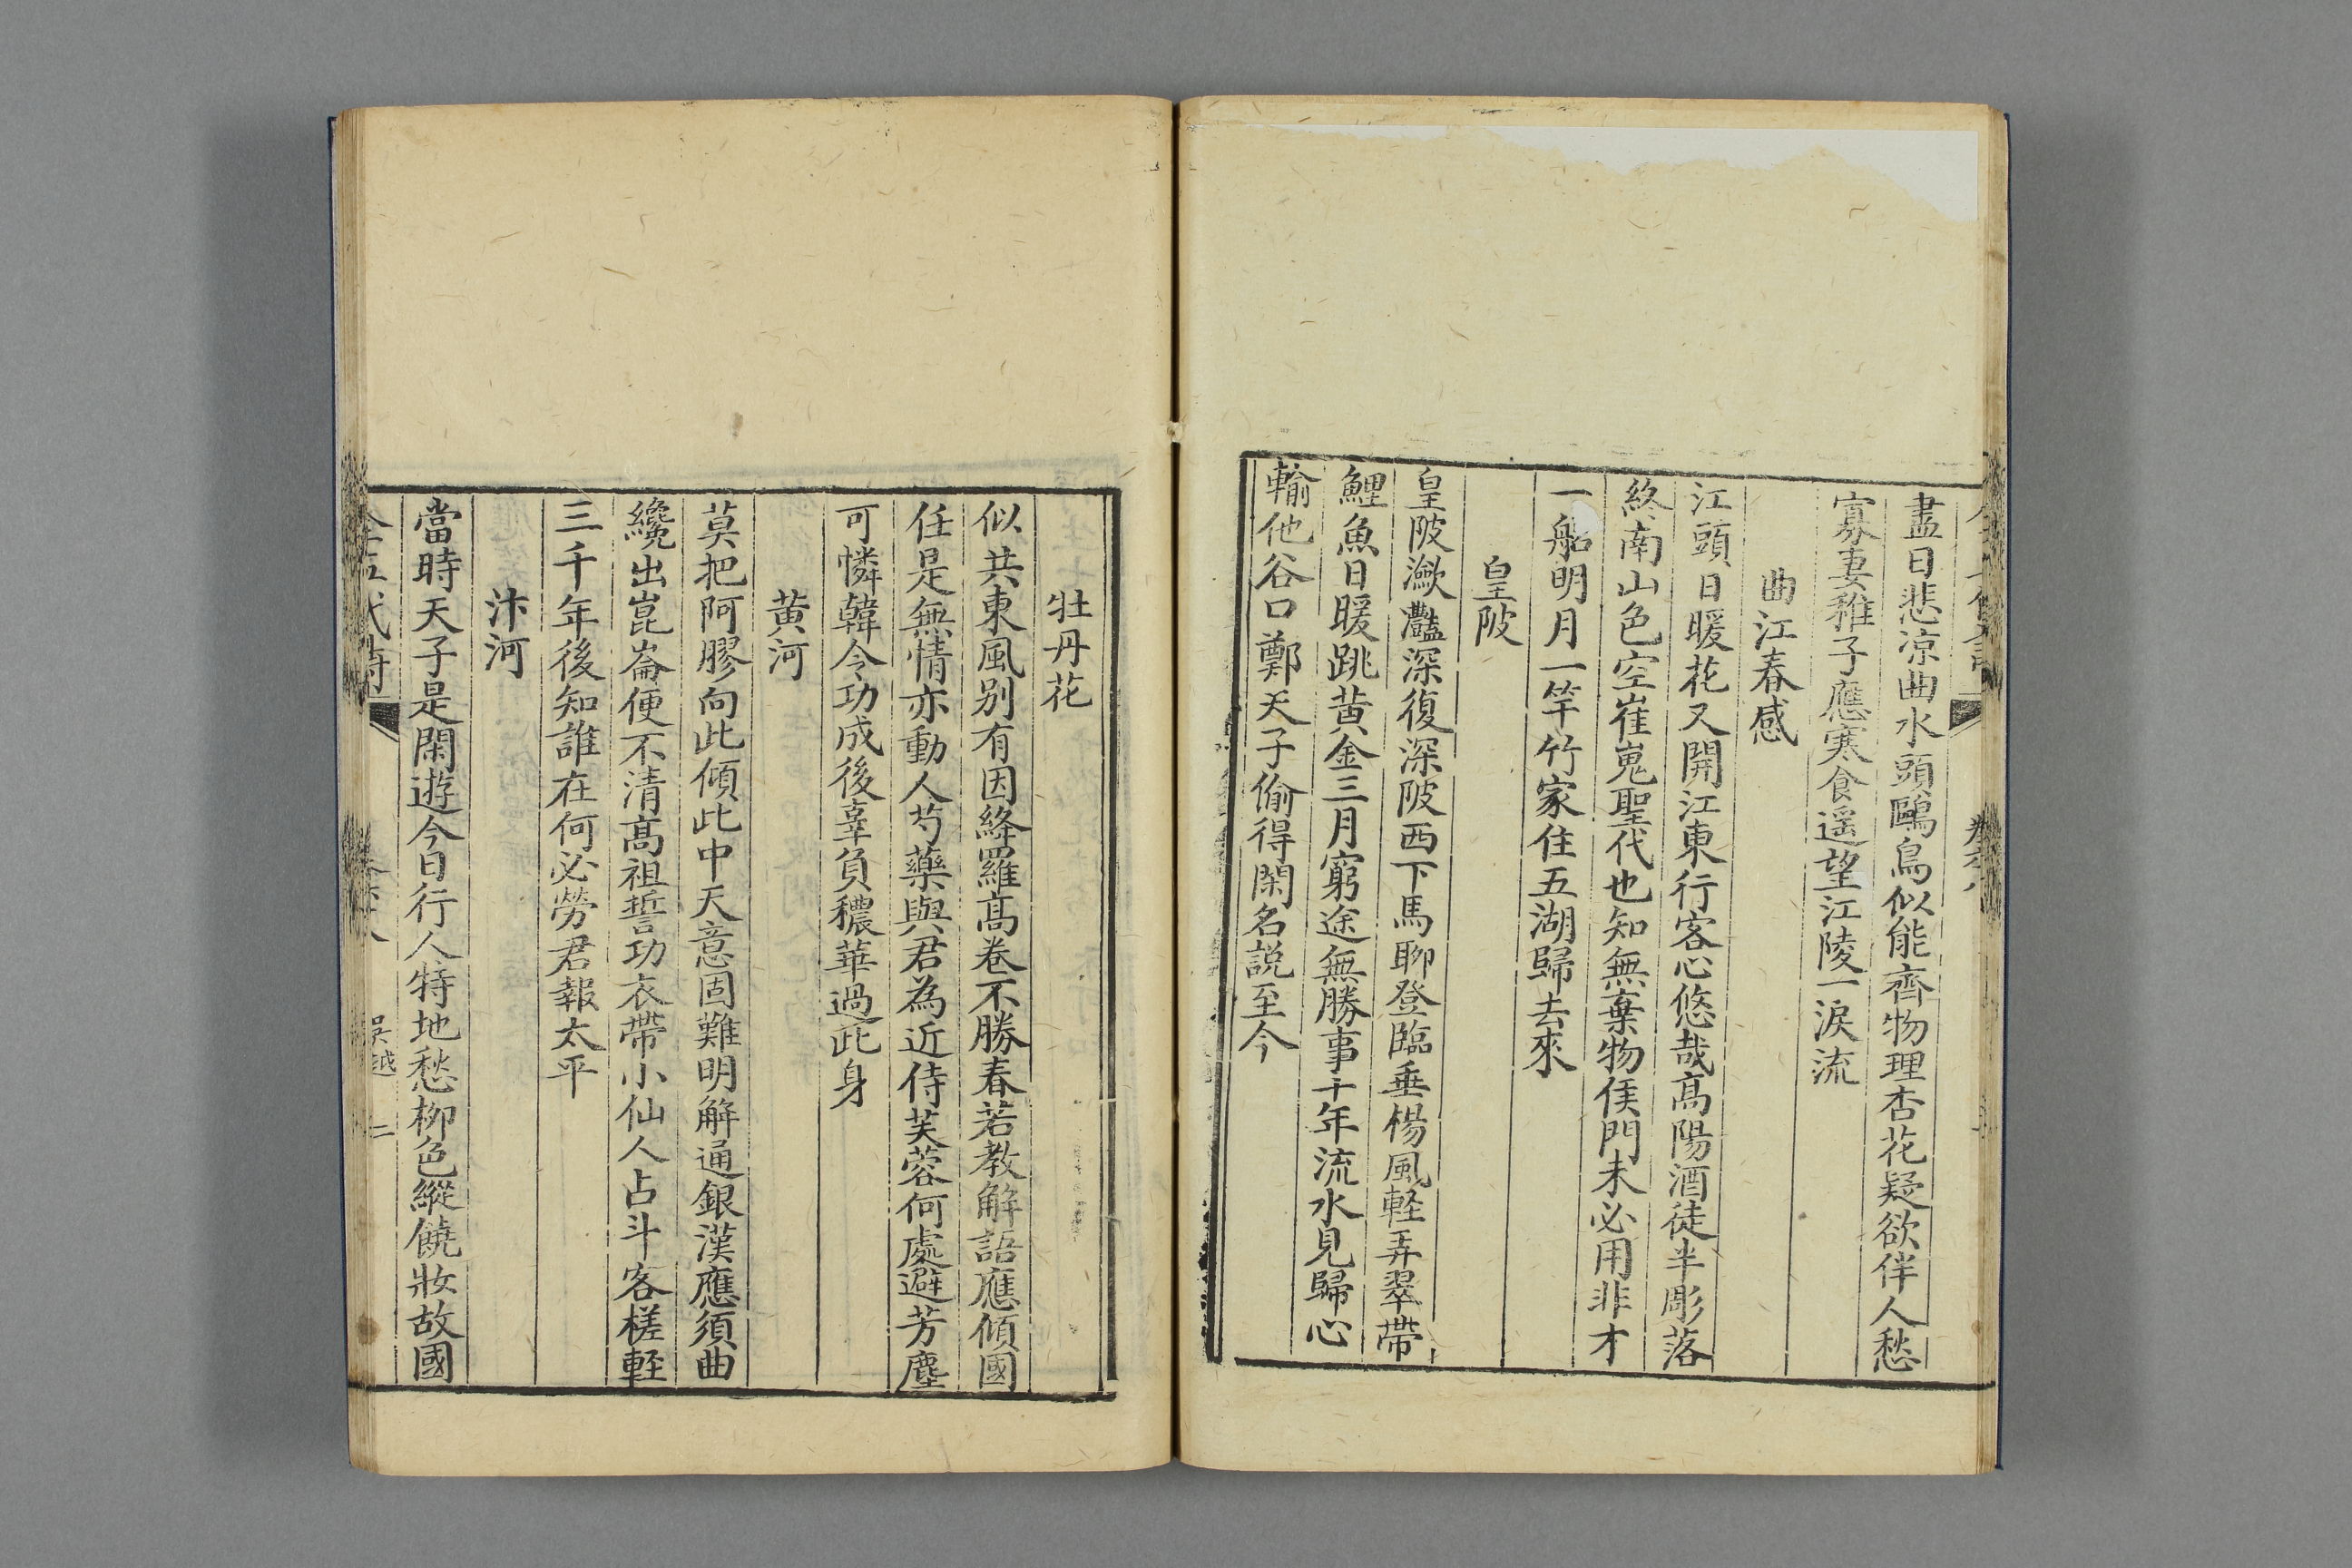 盡日悲涼曲水頭鷗鳥似能齊物理杏花疑欲伴人愁
寡妻稚子應寒食遥望江陵一淚流
曲江春感
江頭日暖花又開江東行客心悠哉髙陽酒徒半彫落
終南山色空崔嵬聖代也知無棄物侯門未必用非才
一船明月一竿竹家住五湖歸去來
皇陂
皇陂潋灩深復深陂西下馬聊登臨垂楊風軽弄翠帶
鯉魚日暖跳黄金三月窮途無勝事千年流水見歸心
輸他谷口鄭天子偷得閑名説至今
牡丹花
似共東風别有因絳羅髙卷不勝春若教解語應傾國
任是無情亦動人芍藥與君為近侍芙蓉何處避芳塵
可憐韓令功成後辜負穠華過此身
黄河
莫把阿膠向此傾此中天意固難明解通銀漢應須曲
纔出崑崙便不清髙祖誓功衣帶小仙人占斗客槎軽
三千年後知誰在何必勞君報太平
汴河
當時天子是閑遊今日行人特地愁栁色縱饒妝故國
吴越 二